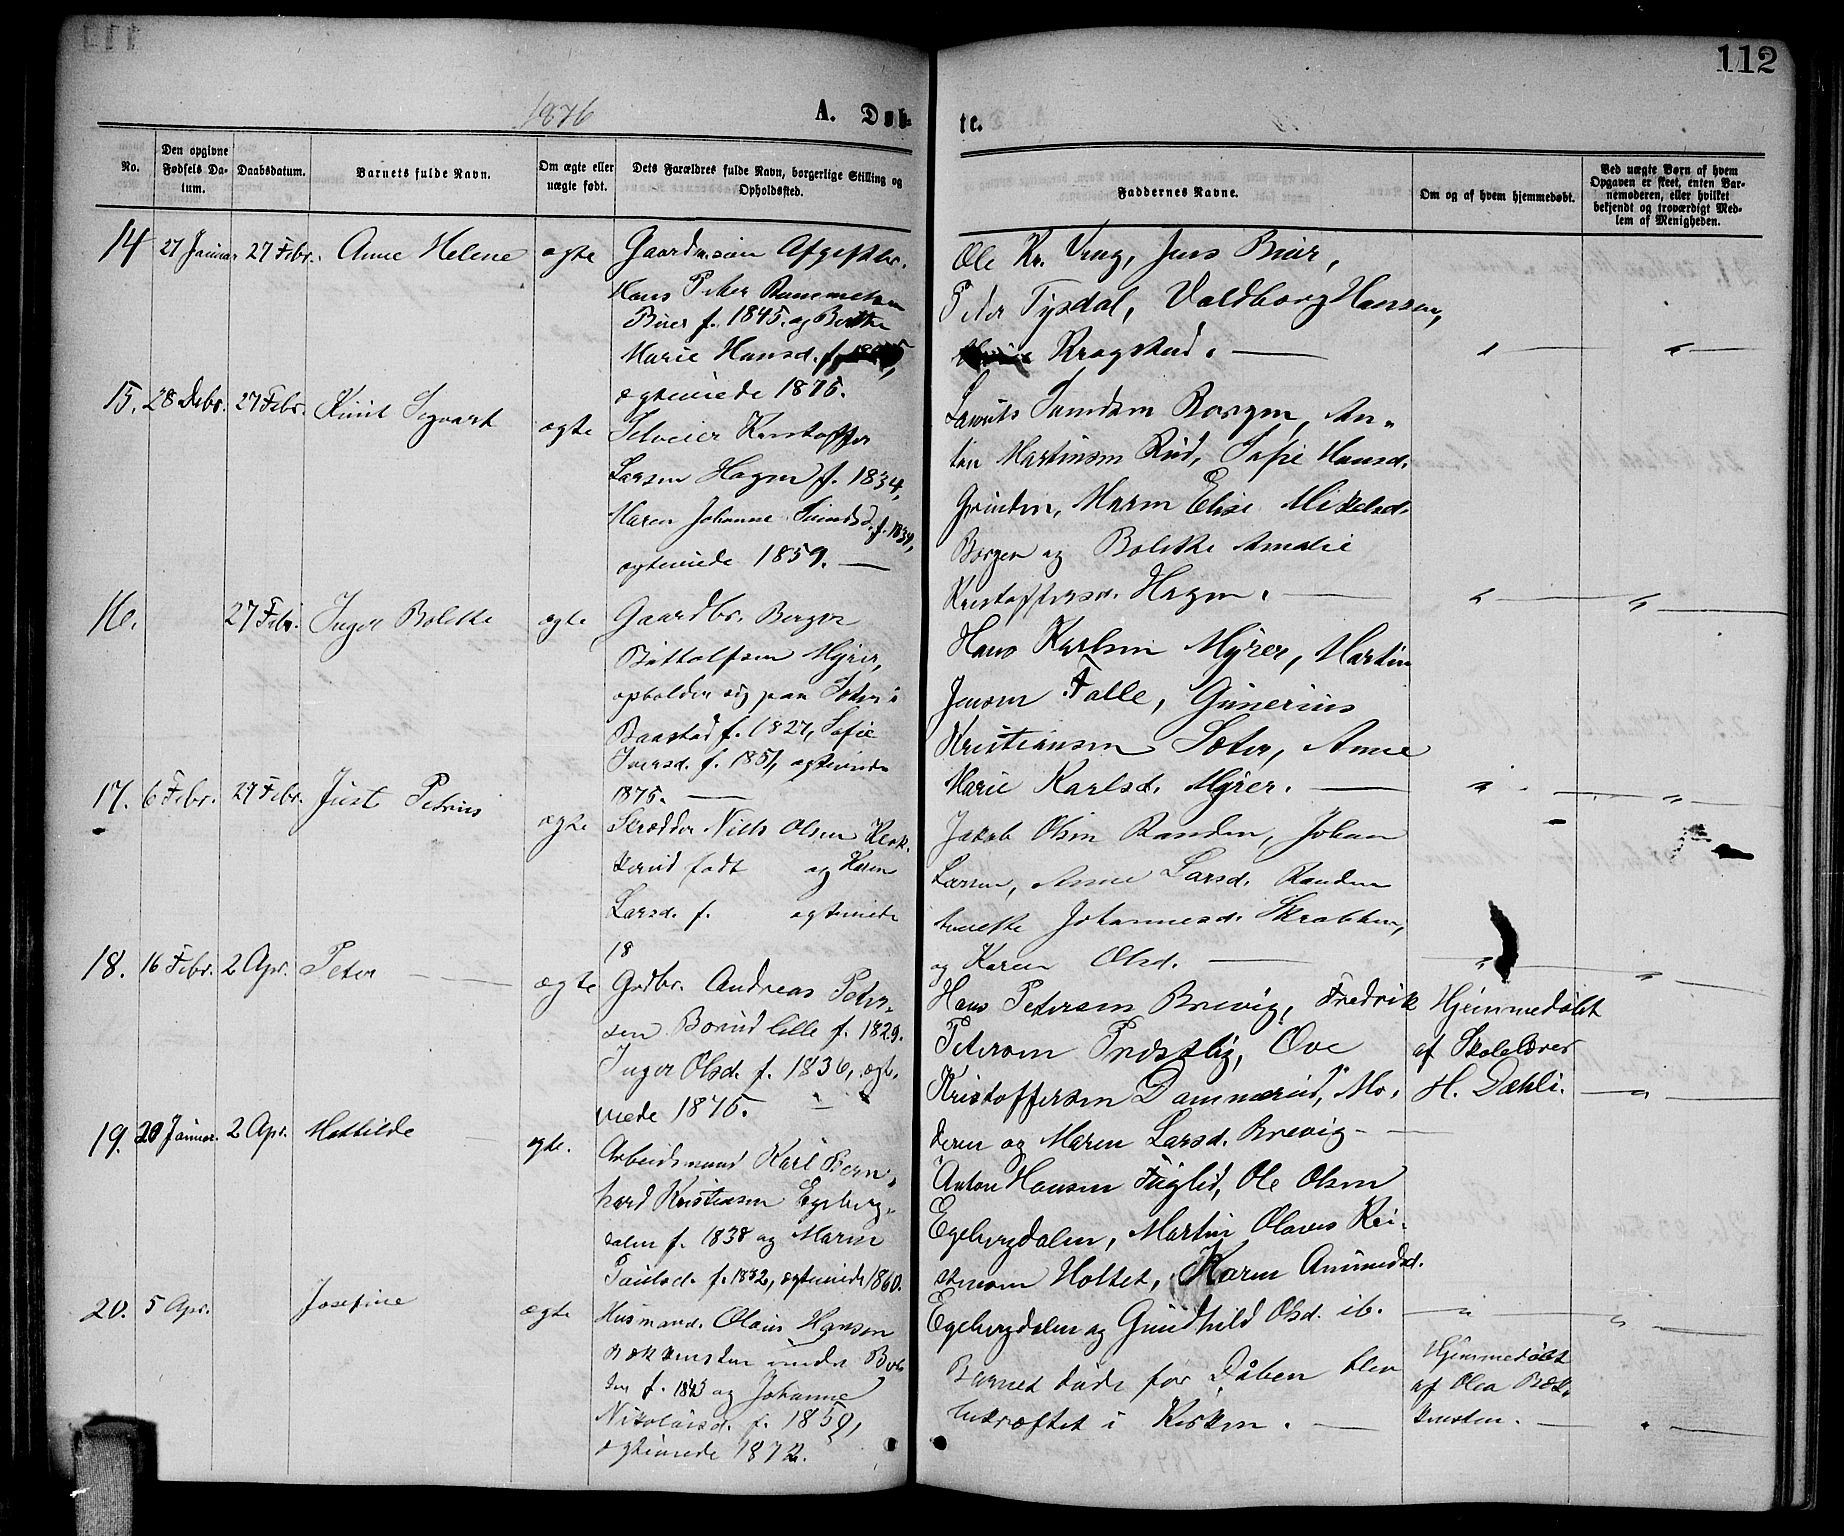 112
1876
A. Døb-
te.
No.
Den opgivne Fødsels Da-tum.
Daabsdatum.
Barnets fulde Navn.
Om ægte eller uægte født.
Dets Forældres fulde Navn, borgerlige Stilling og Opholdssted.
Faddernes Navne.
Om og af hvem hjemmedøbt.
Ved uægte Børn af hvem Opgaven er skeet, enten Bar-nemoderen, eller hvilket bekjendt og troværdigt Med-lem af Menigheden.
14 27 Januar 27 Febr. Anne Helene ægte
Hans Peter
f. 1845. og
Marie Hansd. f.
ægteviede 1875.
Ole Kr. Jens
Peter Tysdal, Valdborg Hansen,
Kragstad.
15. 28 Debr. 27 Febr. Knut Sigvart ægte
Selveier Kristoffer
Larsen Hagen f. 1834,
Maren Johanne f. 1839,
ægteviede 1859.
Borgen, An-
ton Martinsen Rud, Sofie Hansd.
Maren Elise Mikelsd.
Borgen og Bolette Amalie
Kristoffersd. Hagen.
16. 27 Febr. Inger Bolette ægte
Gaardbr. Berger
Myrer,
opholder sig paa Sæter i
Baastad f. 1827, Sofie
Iversd. f. 1851, ægteviede
1875.
Hans Karlsen Myrer, Martin
Jensen Talle, Gunerius
Kristiansen Sæter, Anne
Marie Karlsd. Myrer.
17. 6 Febr. 27 Febr. Just Petrius ægte
Skrædder Niels Olsen
født og Karen
Larsd. f. ægteviede
18
Jakob Olsen Randen, Johan
Larsen, Anne Larsd. Randen
Johannesd.
og Karen Olsd.
18. 16 Febr. 2 Apr. Peter ægte
Grdbr. Andreas Peter-
sen Borud lille f. 1829.
Inger Olsd. f. 1836, ægte-
viede 1875.
Hans Petersen Brevig, Fredrik
Petersen Præstlig, Ove
Kristoffersen Dammerud, Mo-
deren og Maren Larsd. Brevig
Hjemmedøbt
af Skolelærer
H. Dæhli.
19. 20 Januar. 2 Apr. Mathilde ægte.
Arbeidsmand Karl Bern-
hard Kristiansen Egeberg-
dalen f. 1838 og Maren
Paulsd. f. 1832, ægteviede 1860.
Anton Hansen Fuglid, Ole Olsen
Egebergdalen, Martin Olaves Kri-
stensen Holtet, Karen Amundsd.
Egebergdalen og Gundhild Olsd. ib.
20. 5 Apr. Josefine ægte
Husmand. Olaus Hansen
Bækkensten under
f. 1843 og Johanne
Nikolaisd. f. 1850,
ægteviede 1872.
Barnet døde før Dåben blev
bekræftet i Kirken.
Hjemmedøbt
af Olea Bæk-
kensten.